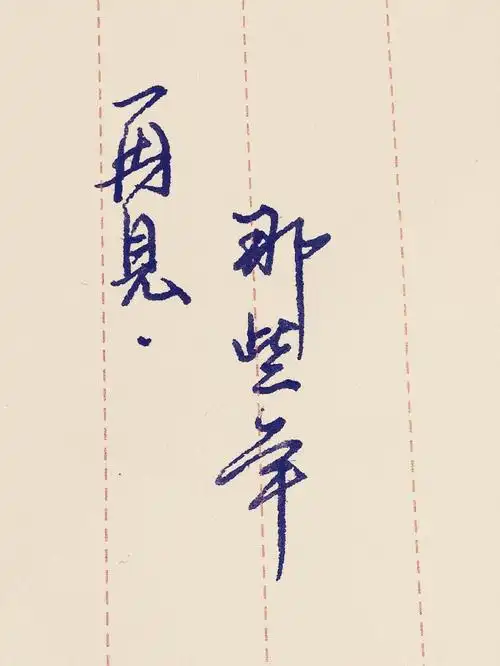 再見.
那些年